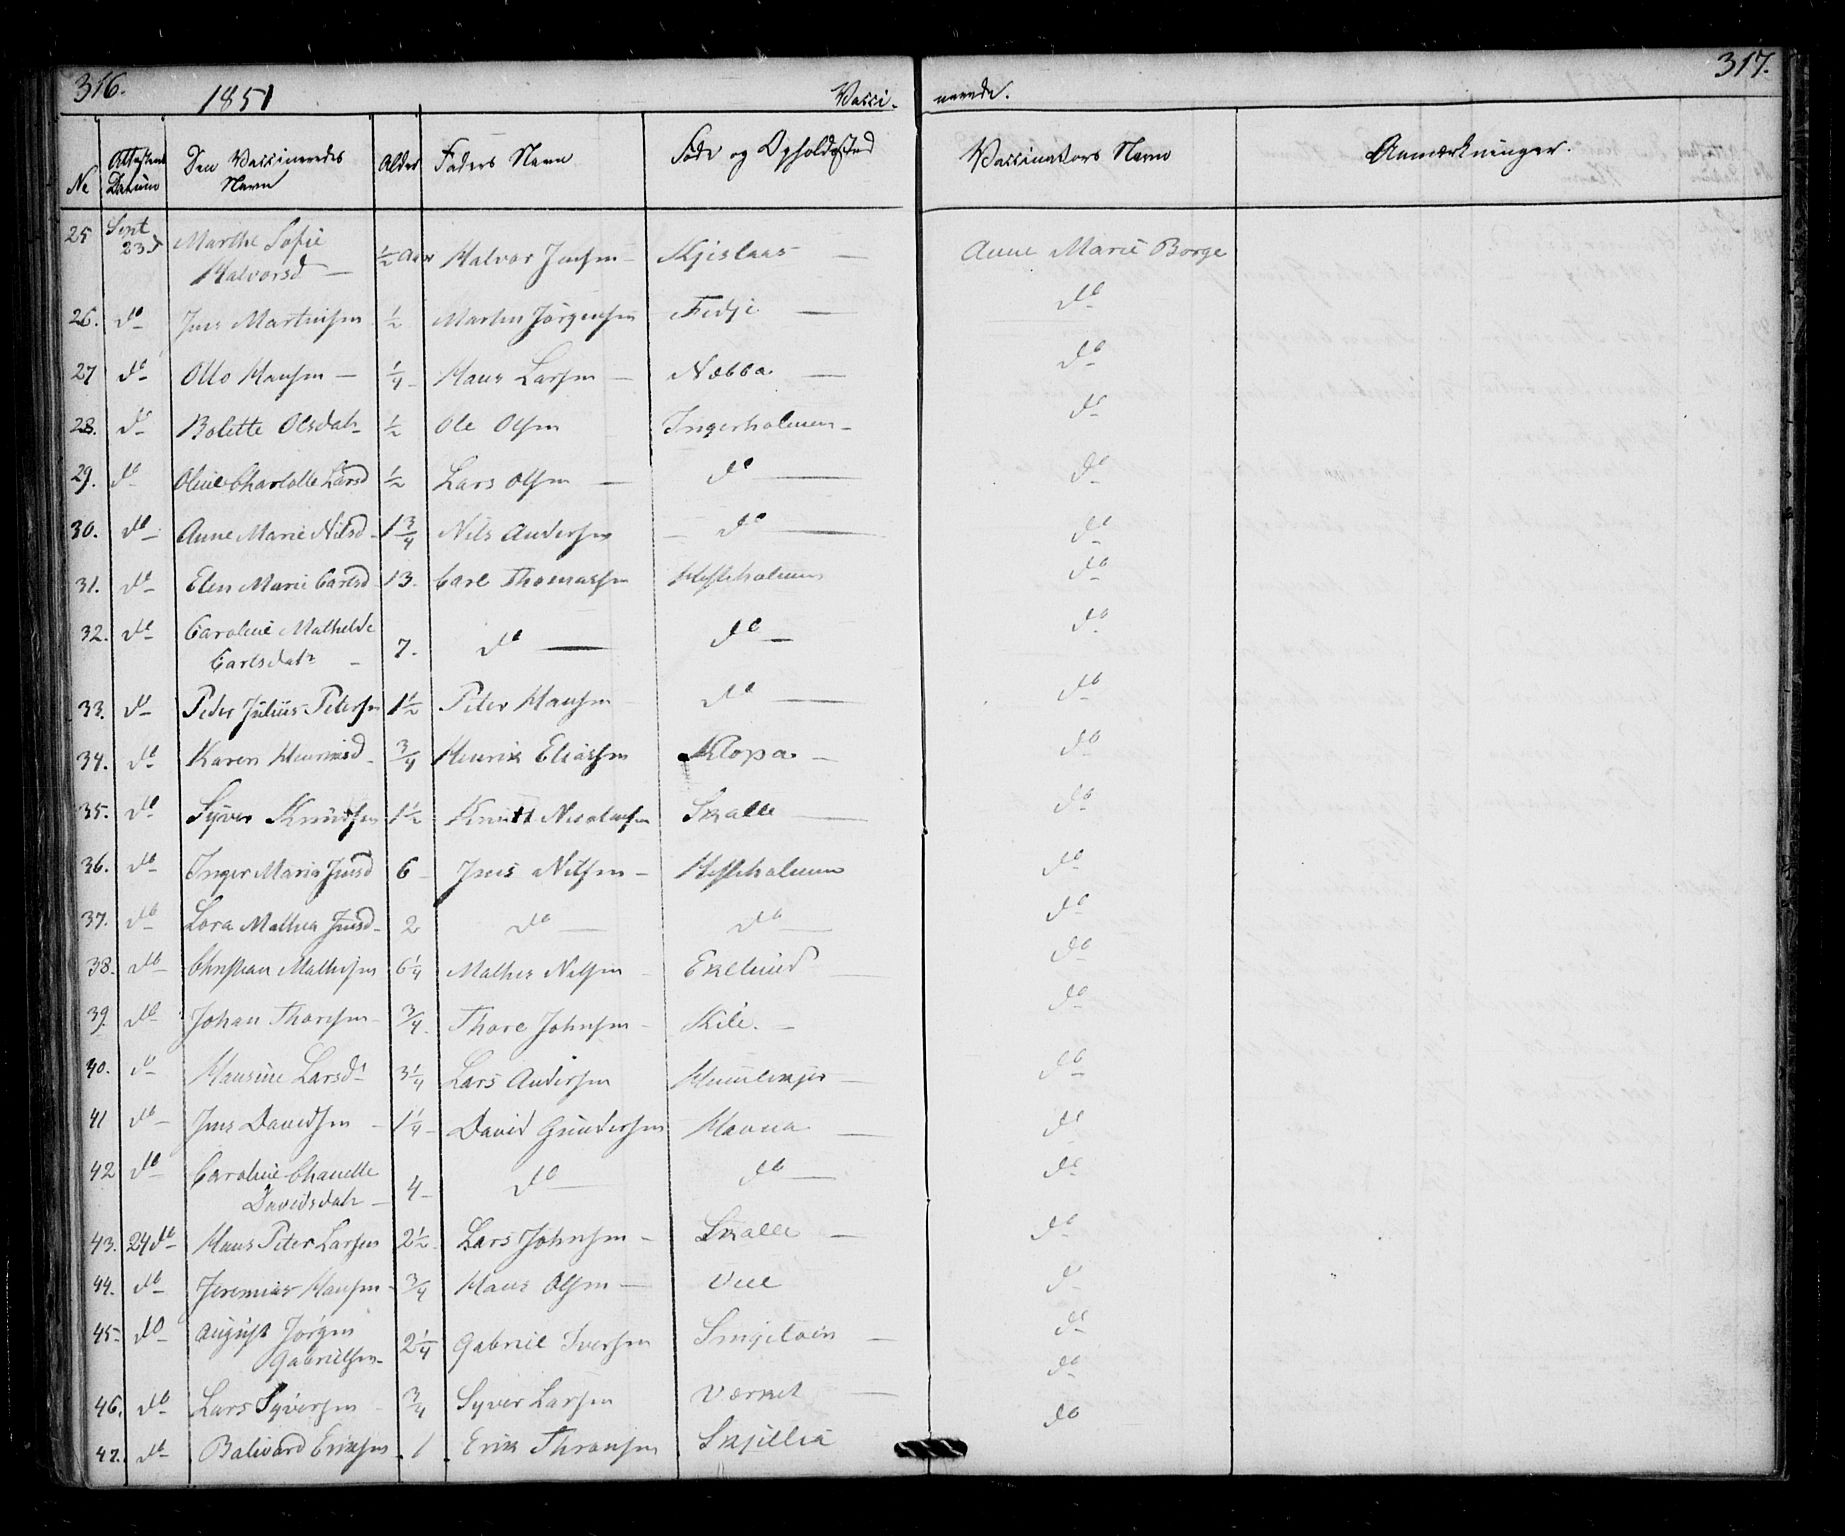 316.
1851
Vacci-
nerede.
317.
No Attestens Datum Den Vaccineredes Navn Alder Faders Navn Føde og Opholdssted Vaccinators Navn Anmærkninger.
25 Sept 23d Marthe Sofie Halvorsd ½ Aar Halvor Jensen Anne Marie Borge
26. do Jens Martinsen ½ Martin Jørgensen Fedje do
27 do Otto Hansen ¼ Hans Larsen Nabba do
28. do Bolette Olsdatr ½ Ole Olsen Ingerholmen do
29. do Oline Charlotte Larsd ½ Lars Olsen do do
30. do Anne Marie Nilsd 1¾ Nils Andersen do do
31. do Elen Marie Carlsd 13. Carl Thomassen Hesteholmen do
32. do Caroline Mathilde Carlsdatr 7. do do do
33. do Peder Julius Petersen 1½ Peter Hansen do do
34. do Karen Henriksd ¾ Henrik Eliassen Klopa do
35. do Syver Knudsen 1½ Knut Nicolaisen Skalle do
36. do Inger Maria Jensd 6 Jens Nilsen Hesteholmen do
37. do Lora Mathea Jensd 2 do do do
38. do Christian Mathisen 6¼ Mathis Nilsen Eklund do
39. do Johan Thoresen ¾ Thore Johnsen Kile. do
40. do Hansine Larsd 3¼ Lars Andersen do
41 do Jens Davidsen 1¼ David Gundersen Havna do
42 do Caroline Chanette Davidsdatr 4 do do do
43. 24 do Hans Peter Larsen 2½ Lars Johnsen Skalle do
44. do Jeremias Hansen ¾ Hans Olsen do
45 do August Jørgen Gabrielsen 2¼ Gabriel Iversen do
46. do Lars Syversen ¾ Syver Larsen Værket do
47. do Eriksen 1 Erik do